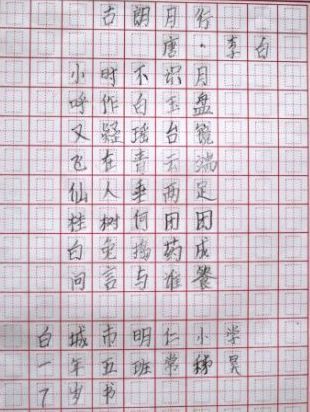 古朗月行
唐·李白
小时不识月
呼作白玉盘
又疑瑶台镜
飞在青云端
仙人垂两足
桂树何团团
白兔捣药成
问言与谁餐
白城市明仁小学
一年五班常 昊
7岁书